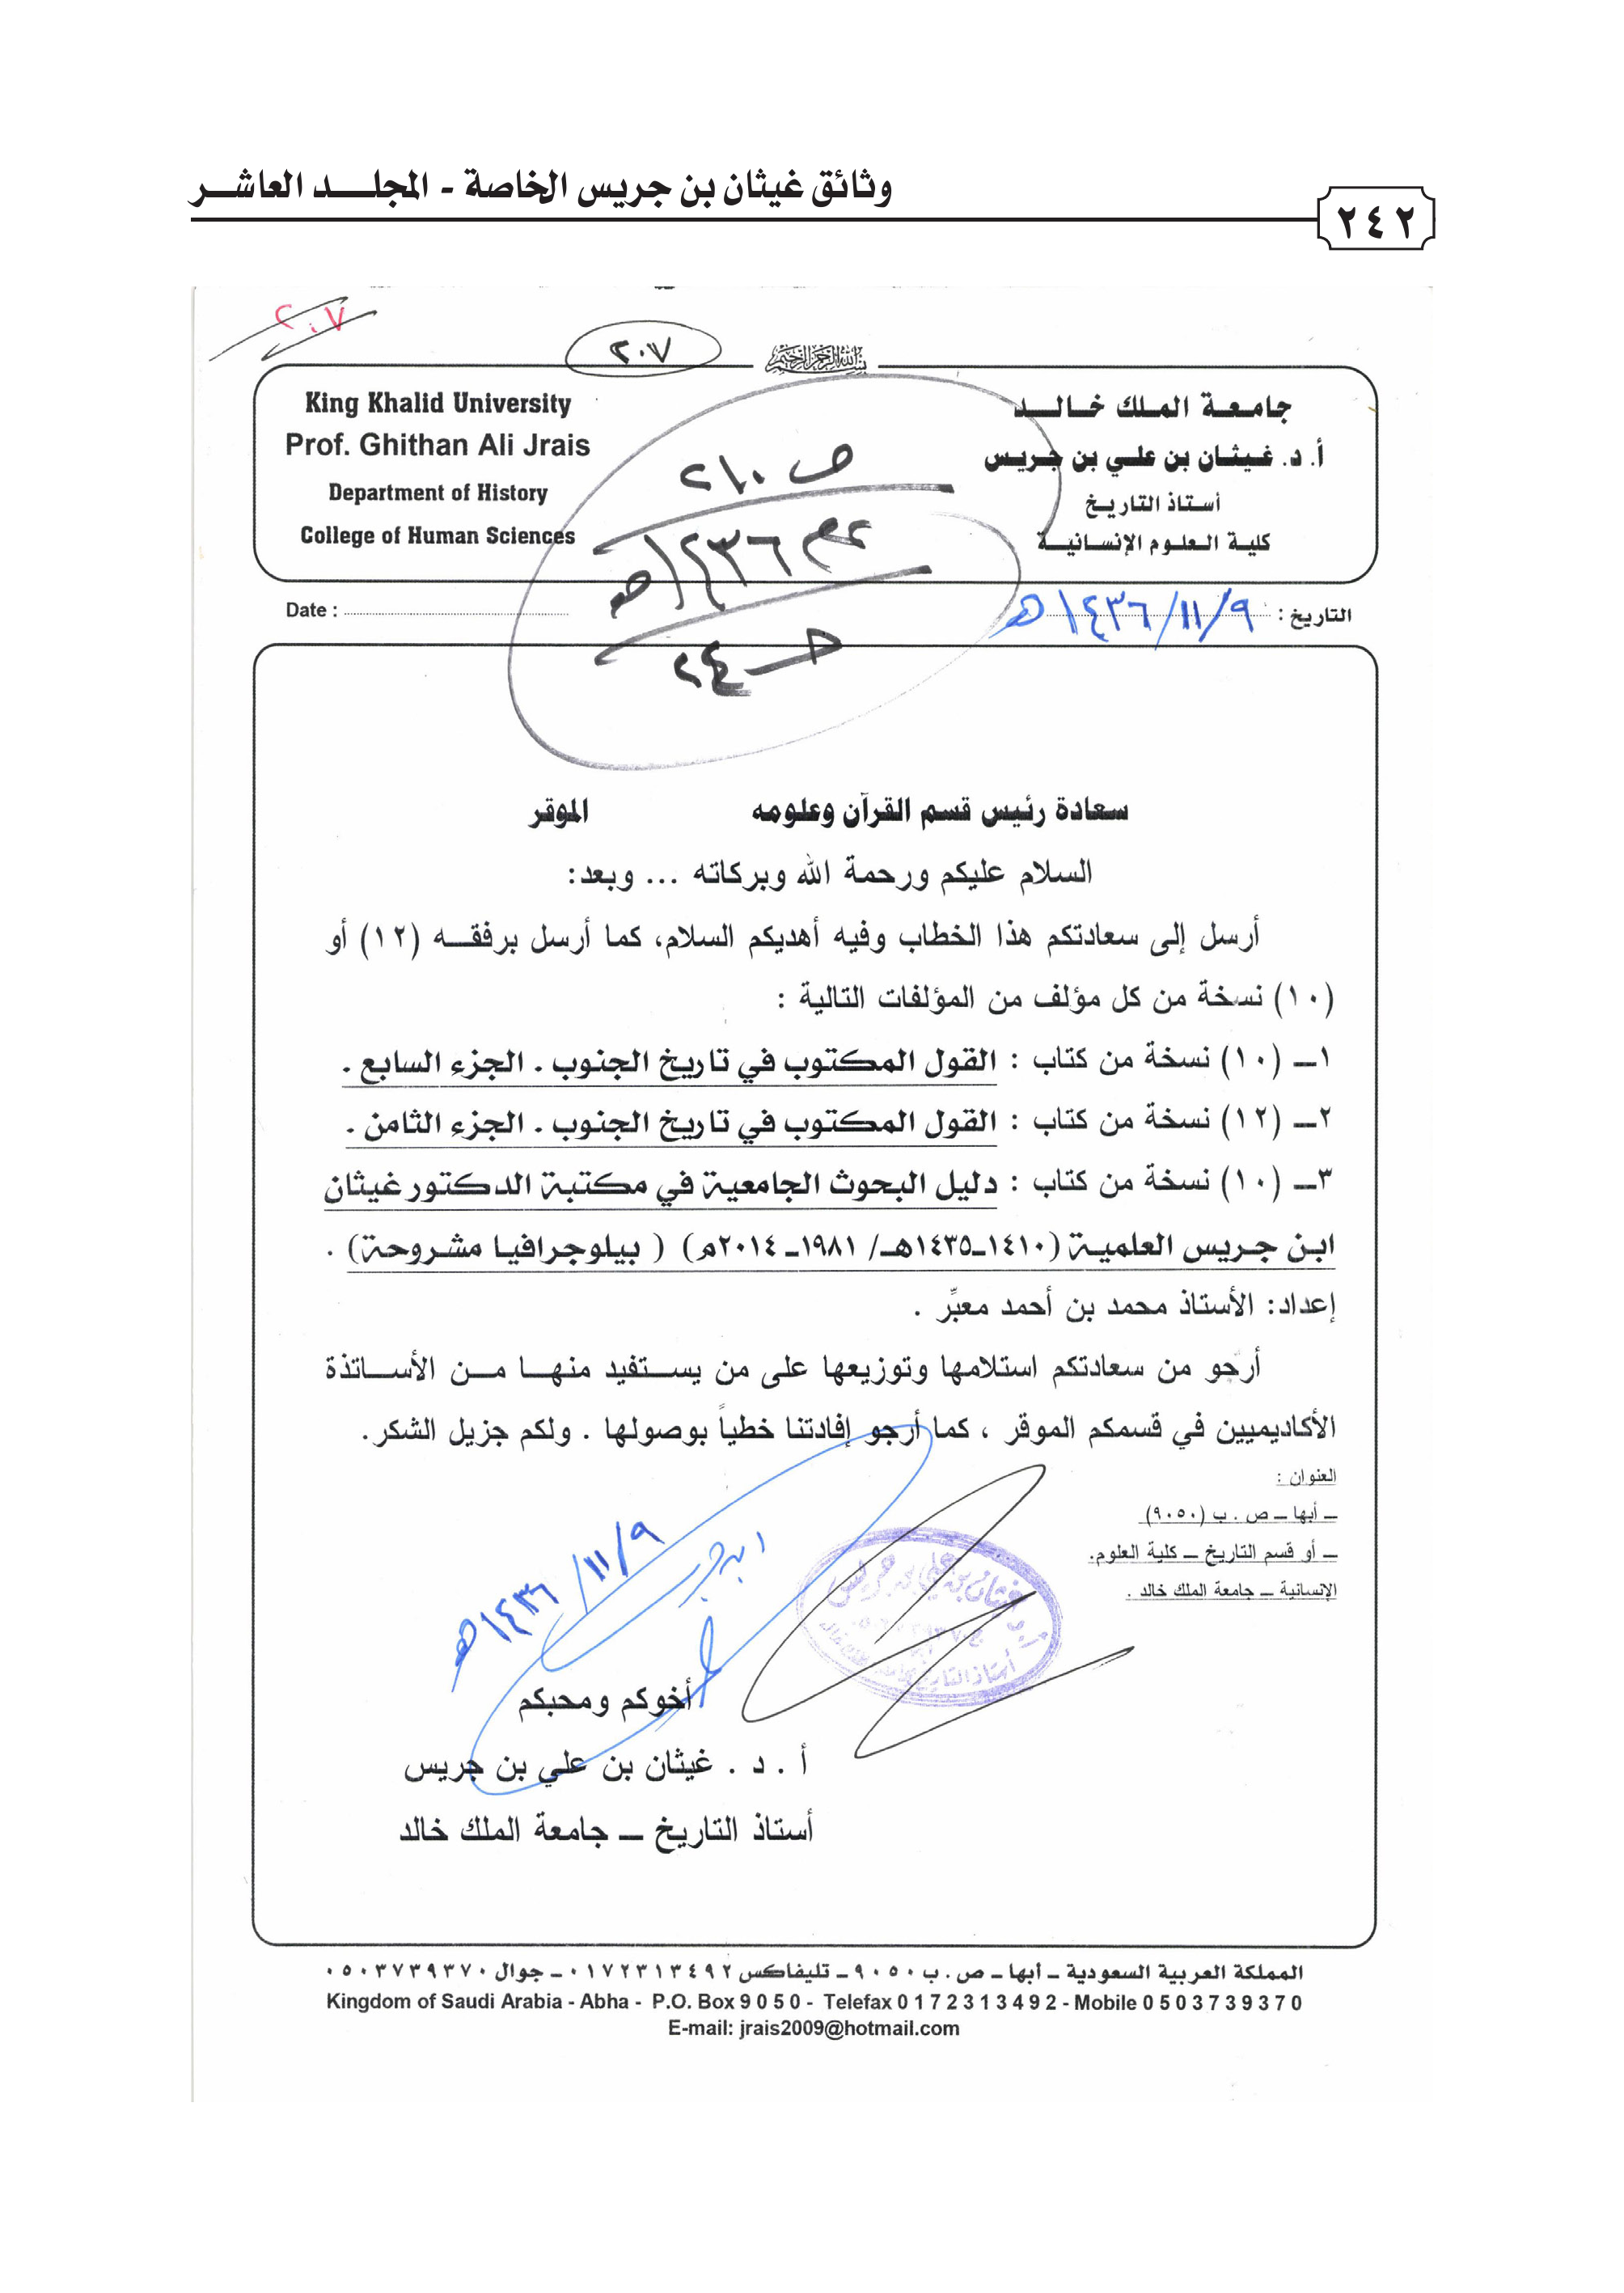 وثائق غيثان بن جريس الخاصة - المجلد العاشر
٢٤٢
٢٠٧
٢٠٧
بسم الله الرحمن الرحيم
جامعة الملك خالد
أ. د. غيثان بن علي بن جريس
أستاذ التاريخ
كلية العلوم الإنسانية
King Khalid University
Prof. Ghithan Ali Jrais
Department of History
College of Human Sciences
ص ٢١٠
عام ١٤٣٦هـ
حـ ٢٤
التاريخ : ٩/١١/١٤٣٦هـ
Date :
سعادة رئيس قسم القرآن وعلومه الموقر
السلام عليكم ورحمة الله وبركاته ... وبعد:
أرسل إلى سعادتكم هذا الخطاب وفيه أهديكم السلام، كما أرسل برفقه (١٢) أو
(١٠) نسخة من كل مؤلف من المؤلفات التالية :
١ــ (١٠) نسخة من كتاب : القول المكتوب في تاريخ الجنوب . الجزء السابع .
٢ــ (١٢) نسخة من كتاب : القول المكتوب في تاريخ الجنوب . الجزء الثامن .
٣ــ (١٠) نسخة من كتاب : دليل البحوث الجامعية في مكتبة الدكتور غيثان
ابن جريس العلمية (١٤١٠ــ١٤٣٥هـ/ ١٩٨١ــ٢٠١٤م) ( بيلوجرافيا مشروحة) .
إعداد: الأستاذ محمد بن أحمد معبِّر .
أرجو من سعادتكم استلامها وتوزيعها على من يستفيد منها من الأساتذة
الأكاديميين في قسمكم الموقر ، كما أرجو إفادتنا خطياً بوصولها . ولكم جزيل الشكر.
العنوان :
ــ أبها ــ ص . ب (٩٠٥٠)
ــ أو قسم التاريخ ــ كلية العلوم.
الإنسانية ــ جامعة الملك خالد .
ابن جريس
٩/١١/١٤٣٦هـ
أ.د غيثان بن علي بن جريس
أخوكم ومحبكم
أ . د . غيثان بن علي بن جريس
أستاذ التاريخ ــ جامعة الملك خالد
المملكة العربية السعودية ــ أبها ــ ص. ب ٩٠٥٠ ــ تليفاكس ٠١٧٢٣١٣٤٩٢ ــ جوال ٠٥٠٣٧٣٩٣٧٠
Kingdom of Saudi Arabia - Abha - P.O. Box 9 0 5 0 - Telefax 0 1 7 2 3 1 3 4 9 2 - Mobile 0 5 0 3 7 3 9 3 7 0
E-mail: jrais2009@hotmail.com